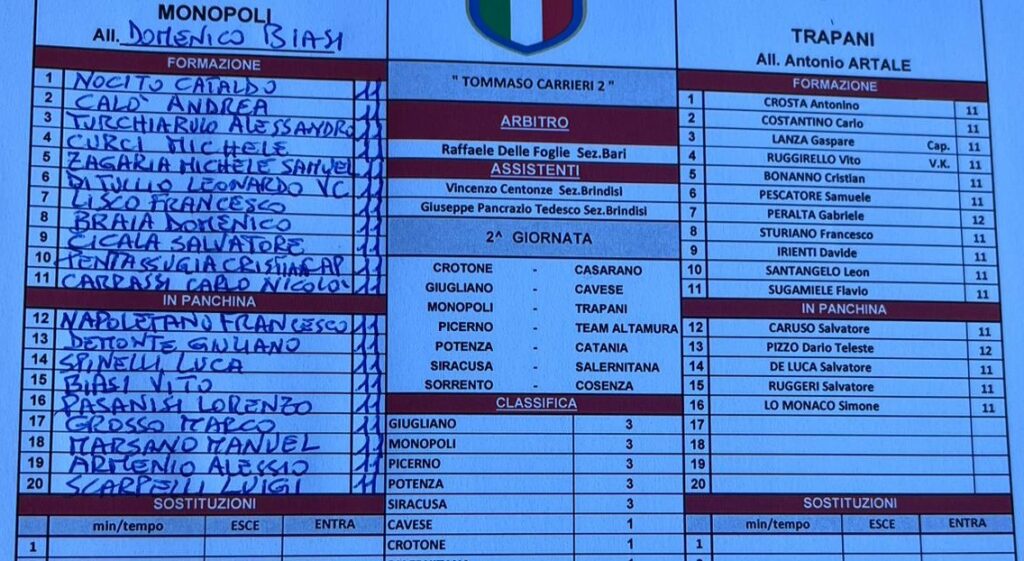 MONOPOLI
All. DOMENICO BIASI
FORMAZIONE
1 NOCITO CATALDO 11
2 CALO' ANDREA 11
3 TURCHIARULO ALESSANDRO 11
4 CURCI MICHELE 11
5 ZAGARIA MICHELE SAMUEL 11
6 DITULLIO LEONARDO VC 11
7 LISCO FRANCESCO 11
8 BRAIA DOMENICO 11
9 CICALA SALVATORE 11
10 PENTASSUGIA CRISTIAN CAP 11
11 CARRASSI CARLO NICOLO' 11
IN PANCHINA
12 NAPOLETANO FRANCESCO 11
13 DEMONTE GIULIANO 11
14 SPINELLI LUCA 11
15 BIASI VITO 11
16 PASANISI LORENZO 11
17 GROSSO MARCO 11
18 MARSANO MANUEL 11
19 ARMENIO ALESSIO 11
20 SCARPELLI LUIGI 11
SOSTITUZIONI
min/tempo ESCE ENTRA
1
" TOMMASO CARRIERI 2 "
ARBITRO
Raffaele Delle Foglie Sez.Bari
ASSISTENTI
Vincenzo Centonze Sez.Brindisi
Giuseppe Pancrazio Tedesco Sez.Brindisi
2^ GIORNATA
CROTONE - CASARANO
GIUGLIANO - CAVESE
MONOPOLI - TRAPANI
PICERNO - TEAM ALTAMURA
POTENZA - CATANIA
SIRACUSA - SALERNITANA
SORRENTO - COSENZA
CLASSIFICA
GIUGLIANO 3
MONOPOLI 3
PICERNO 3
POTENZA 3
SIRACUSA 3
CAVESE 1
CROTONE 1
TRAPANI
All. Antonio ARTALE
FORMAZIONE
1 CROSTA Antonino 11
2 COSTANTINO Carlo 11
3 LANZA Gaspare Cap. 11
4 RUGGIRELLO Vito V.K. 11
5 BONANNO Cristian 11
6 PESCATORE Samuele 11
7 PERALTA Gabriele 12
8 STURIANO Francesco 11
9 IRIENTI Davide 11
10 SANTANGELO Leon 11
11 SUGAMIELE Flavio 11
IN PANCHINA
12 CARUSO Salvatore 11
13 PIZZO Dario Teleste 12
14 DE LUCA Salvatore 11
15 RUGGERI Salvatore 11
16 LO MONACO Simone 11
17
18
19
20
SOSTITUZIONI
min/tempo ESCE ENTRA
1